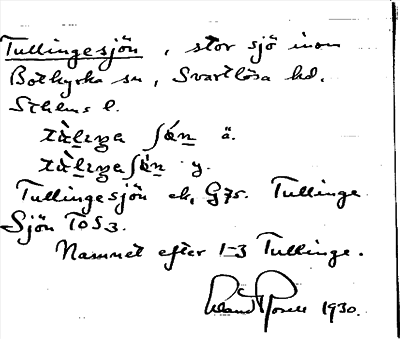 Tullingesjön, stor sjö inom
Botkyrka sn, Svartlösa hd.
Sthlms l.
ä.
y.
Tullingesjön ek, G7r. Tullinge
Sjön TOS3.
Namnet efter 1-3 Tullinge.
1930.